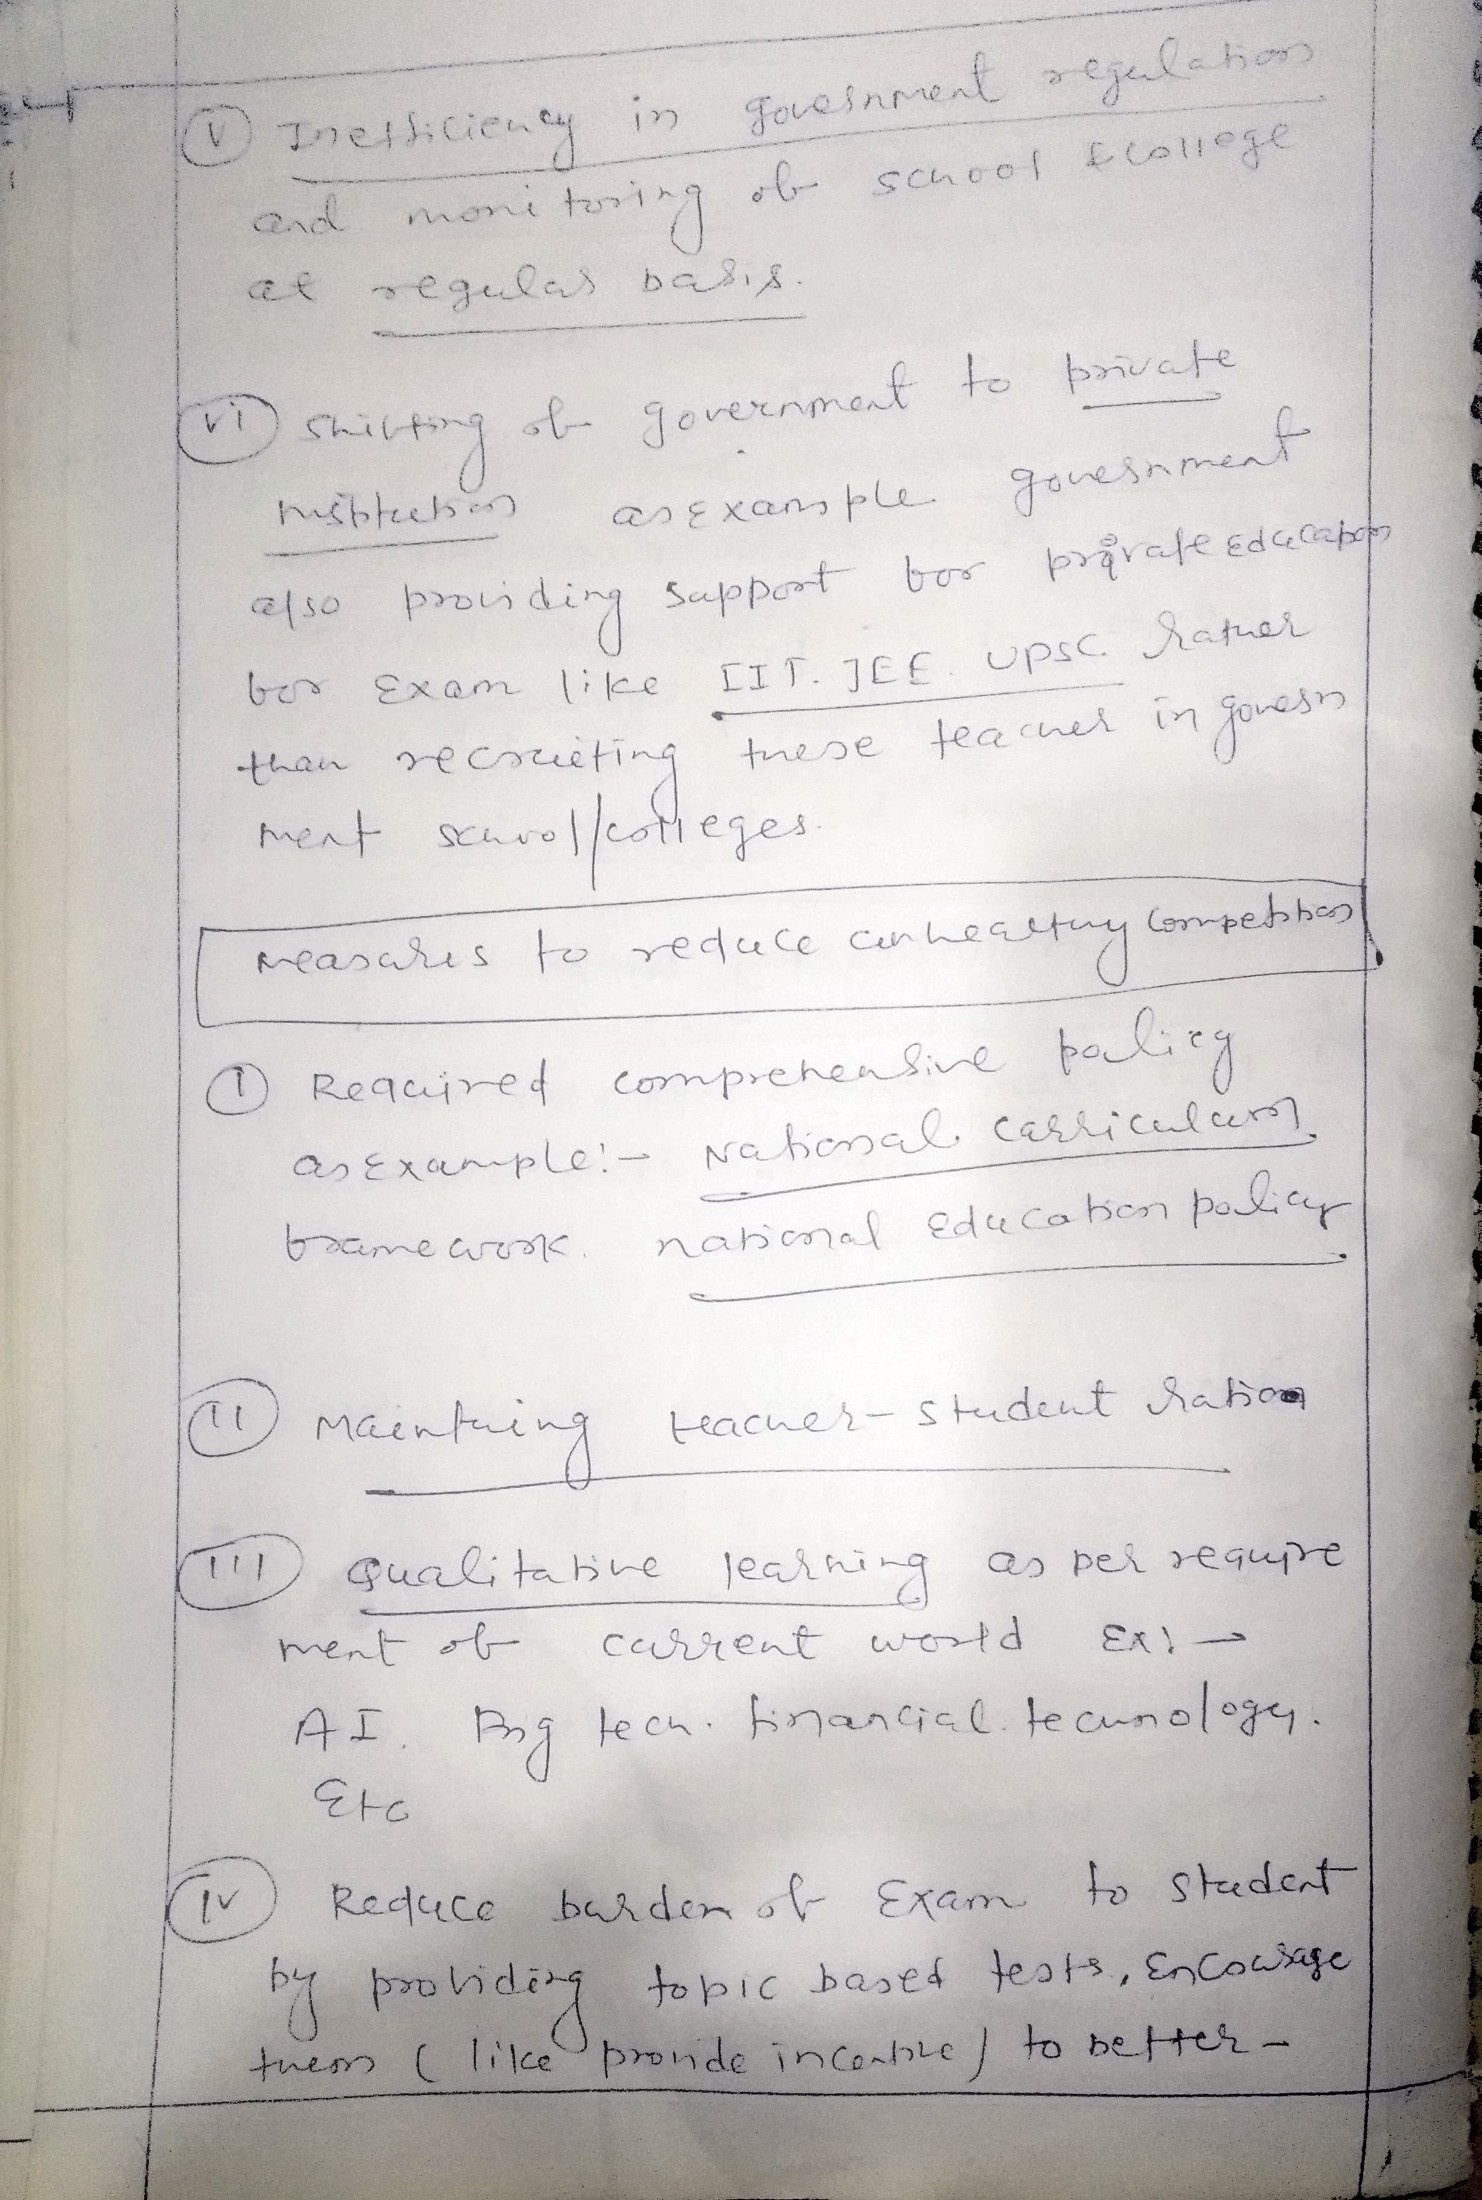 (V) Inefficiency in government regulation
and monitoring of school & college
at regular basis.
(vi) Shifting of government to private
institution as example government
also providing support for private education
for exam like IIT. JEE. UPSC. rather
than recruiting these teacher in govern
ment school/colleges.
Measures to reduce unhealthy competition
(I) Required comprehensive policy
as example:- National curriculum
framework. national education policy
(II) Maintaing teacher-student ratio
(III) Qualitative learning as per require
ment of current world Ex:→
AI. Big tech. financial. technology.
Etc
(IV) Reduce burden of Exam to student
by providing topic based tests, Encourage
them (like provide incentive) to better-